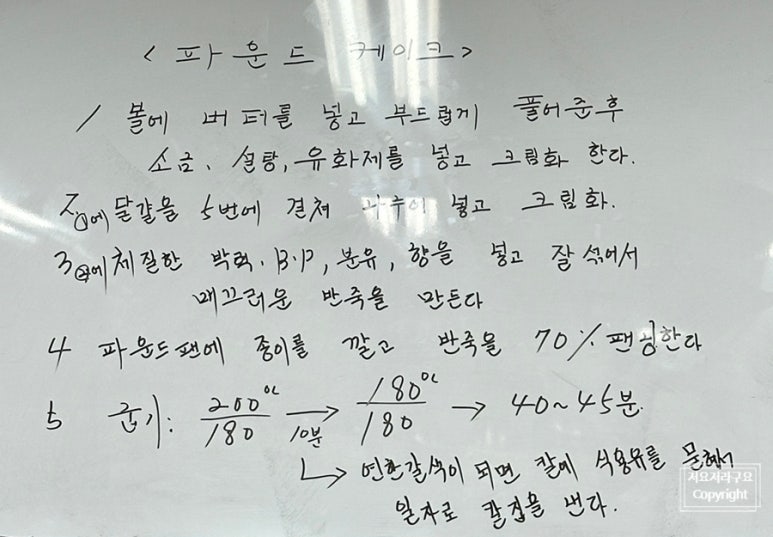 <파운드 케이크>
1 볼에 버터를 넣고 부드럽게 풀어준후
소금, 설탕, 유화제를 넣고 크림화 한다.
2 ①에 달걀을 5번에 걸쳐 나누어 넣고 크림화.
3 ②에 체질한 박력, B.P, 분유, 향을 넣고 잘 섞어서
매끄러운 반죽을 만든다
4 파운드팬에 종이를 깔고 반죽을 70% 팬닝한다
5 굽기: 200℃/180 → 10분 180℃/180 → 40~45분
↳ 연한갈색이 되면 칼에 식용유를 묻혀서
일자로 칼집을 낸다.
저요저라구요
Copyright